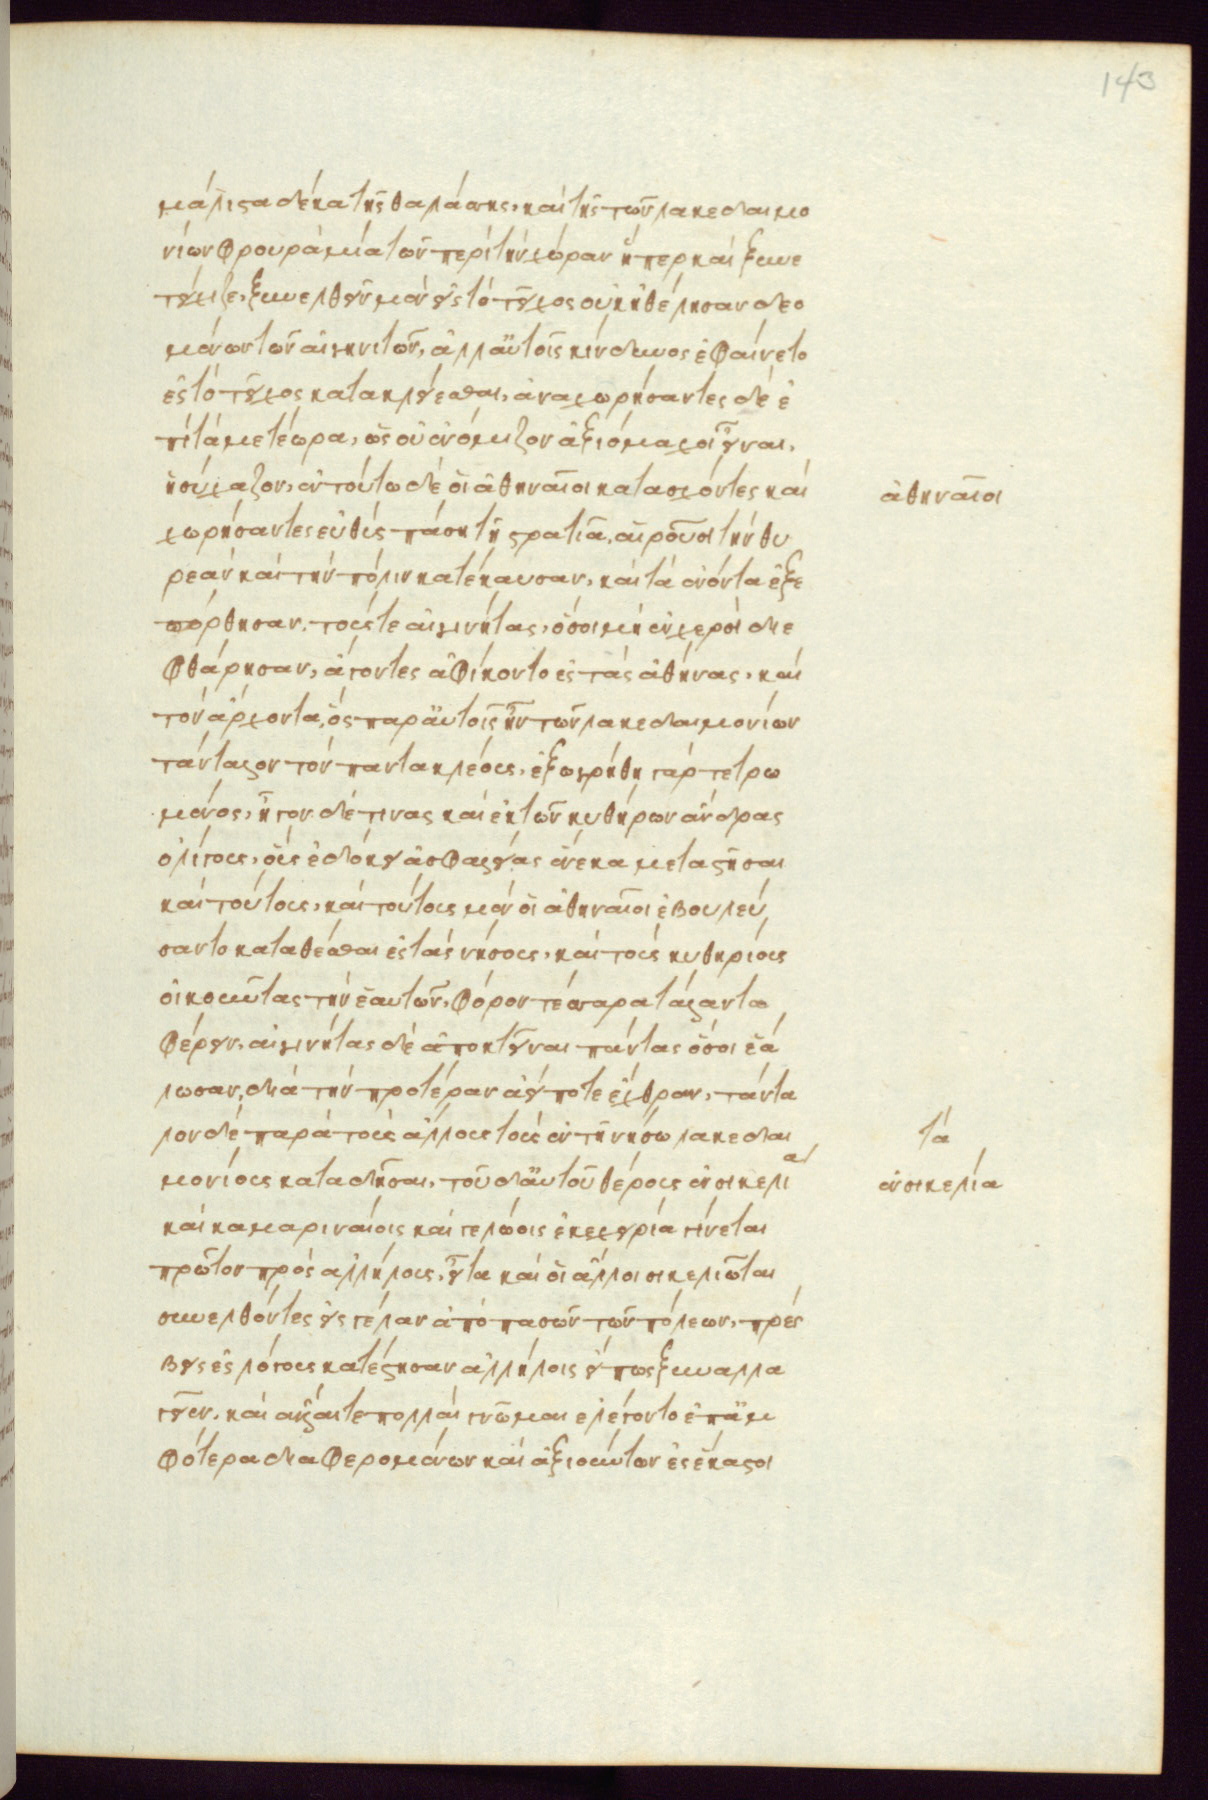 143
μάλιστα δέκα τῆς θαλάσσης, καὶ τῆς τῶν λακεδαιμο
νίων φρουρὰ μία τῶν περὶ τὴν χώραν ἥπερ καὶ ξυνε
τείχιζε, ξυνελθεῖν μὲν εἰς τὸ τεῖχος οὐκ ἠθέλησαν δεο
μένων τῶν αἰγινιτῶν, ἀλλ' αὐτοῖς κίνδυνος ἐφαίνετο
ἐς τὸ τεῖχος κατακλείεσθαι, ἀναχωρήσαντες δὲ ἐ
πὶ τὰ μετέωρα, ὡς οὐ ἐνόμιζον ἀξιόμαχοι εἶναι,
ἡσύχαζον, ἐν τούτω δὲ οἱ ἀθηναῖοι κατασχόντες καὶ
χωρήσαντες εὐθὺς πάση τῆ στρατιᾶ, αἱροῦσι τὴν θυ
ρεάν καὶ τὴν πόλιν κατέκαυσαν, καὶ τὰ ἐνόντα ἐξε
πόρθησαν, τούς τε αἰγινήτας, ὅσοι μὴ ἐν χερσὶ διε
φθάρησαν, ἄγοντες ἀφίκοντο ἐς τὰς ἀθήνας, καὶ
τὸν ἄρχοντα, ὃς παρ' αὐτοῖς ἦν τῶν λακεδαιμονίων
τάνταλον τὸν πατακλέους, ἐξωγρήθη γὰρ τετρω
μένος, ἦγον δέ τινας καὶ ἐκ τῶν κυθήρων ἄνδρας
ὀλίγους, οὓς ἐδόκει ἀσφαλείας ἕνεκα μεταστῆσαι
καὶ τούτους, καὶ τούτους μὲν οἱ ἀθηναῖοι ἐβουλεύ
σαντο καταθέσθαι ἐς τὰς νήσους, καὶ τοὺς κυθηρίους
οἰκοῦντας τὴν ἑαυτῶν, φόρον τέσσαρα τάλαντα
φέρειν, αἰγινήτας δὲ ἀποκτεῖναι πάντας ὅσοι ἑά
λωσαν, διὰ τὴν προτέραν ἀεί ποτε ἔχθραν, τάντα
λον δὲ παρὰ τοὺς ἄλλους τοὺς ἐν τῆ νήσω λακεδαι
μονίους καταδῆσαι, τοῦ δ' αὐτοῦ θέρους ἐν σικελία
καὶ καμαριναίοις καὶ γελώοις ἐκεχειρία γίνεται
πρῶτον πρὸς ἀλλήλους, εἶτα καὶ οἱ ἄλλοι σικελιῶται
συνελθόντες εἰς γέλαν ἀπὸ πασῶν τῶν πόλεων, πρέσ
βεις ἐς λόγους κατέστησαν ἀλλήλοις εἴ πως ξυναλλα
γεῖεν, καὶ ἄλλαι τε πολλαὶ γνῶμαι ἐλέγοντο ἐπ' ἀμ
φότερα διαφερομένων καὶ ἀξιούντων ὡς ἕκαστοι
ἀθηναῖοι
τὰ
ἐν σικελία